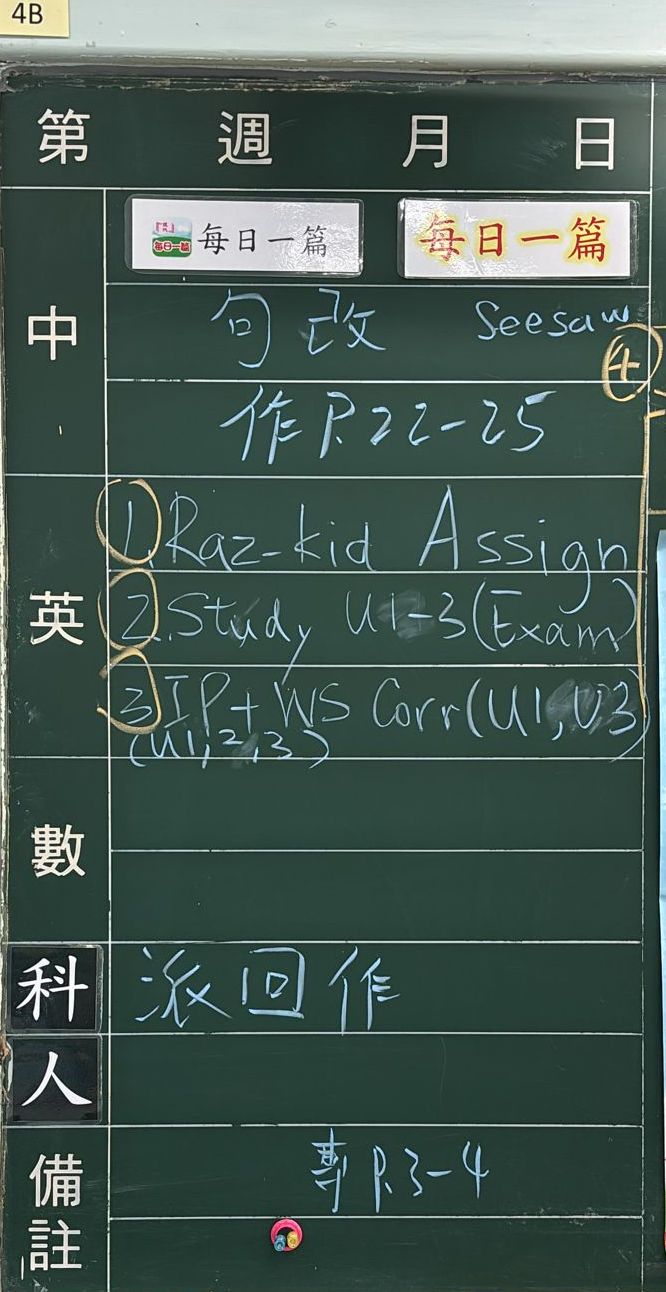 4B
第 週 月 日
每日一篇 每日一篇 每日一篇
中
句改 Seesaw
④
作 P.22-25
1. Raz-kid Assign
英
2. Study U1-3 (Exam)
3 IP + WS Corr (U1, U3)
(U1,2,3)
數
科 派回作
人
備註
專 P.3-4